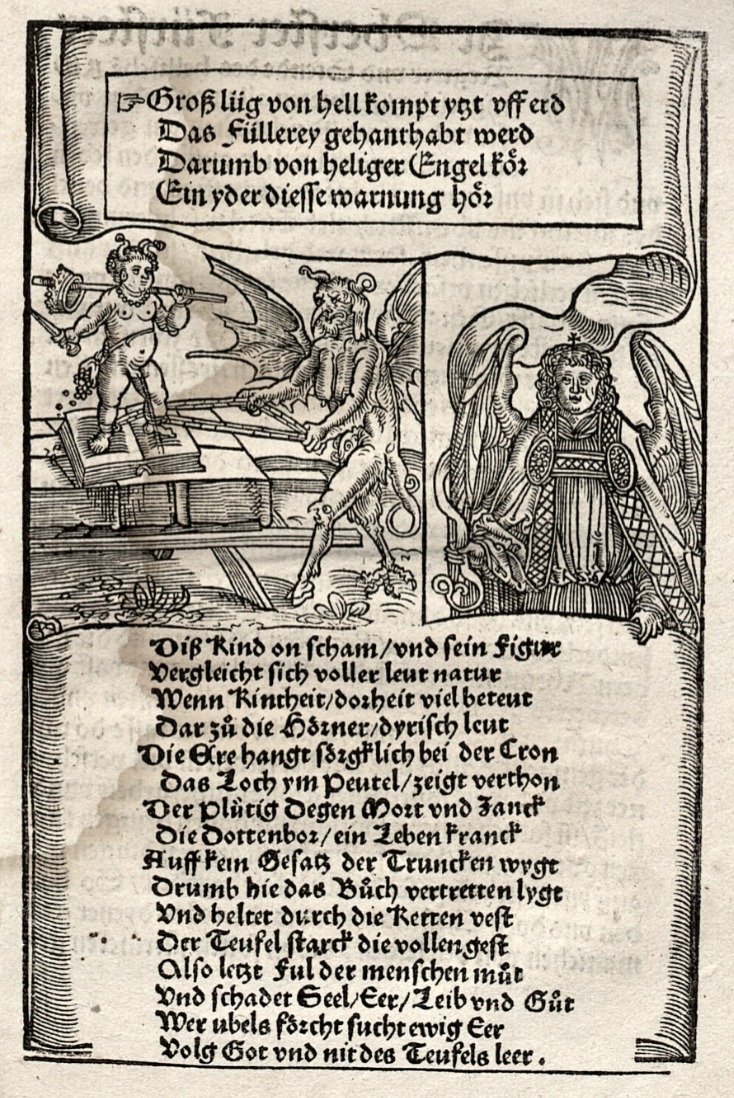 ☞Groß lüg von hell kompt ytzt vff erd
Das Füllerey gehanthabt werd
Darumb von heliger Engel kör
Ein yder diesse warnung hör
Diß Kind on scham/vnd sein Figur
Vergleicht sich voller leut natur
Wenn Kintheit/dorheit viel beteut
Dar zů die Hörner/dyrisch leut
Die Ere hangt sörgklich bei der Cron
Das Loch ym Peutel/zeigt verthon
Der plůtig Degen Mort vnd Zanck
Die Dottenbor/ein Leben kranck
Auff kein Gesatz der Truncken wygt
Drumb hie das Bůch vertretten lygt
Vnd heltet durch die Ketten vest
Der Teufel starck die vollen gest
Also letzt Ful der menschen můt
Vnd schadet Seel/Eer/Leib vnd Gůt
Wer ubels förcht sucht ewig Eer
Volg Got vnd nit des Teufels leer.